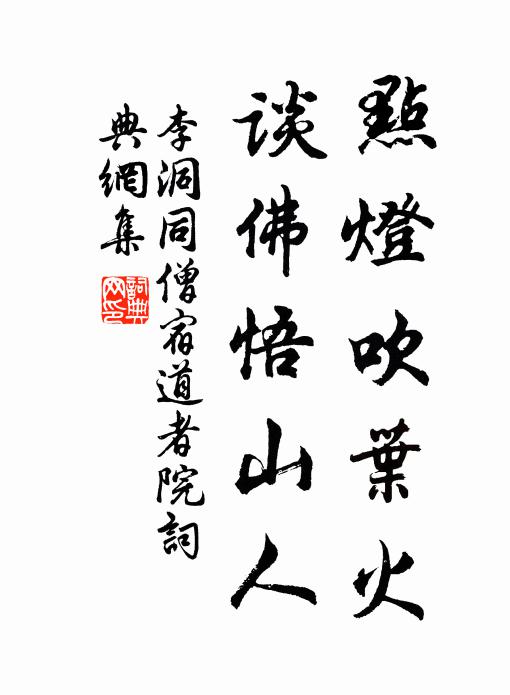 點燈吹葉火
談佛悟山人
李洞同僧宿道者院詞
典網集
詞典
网印